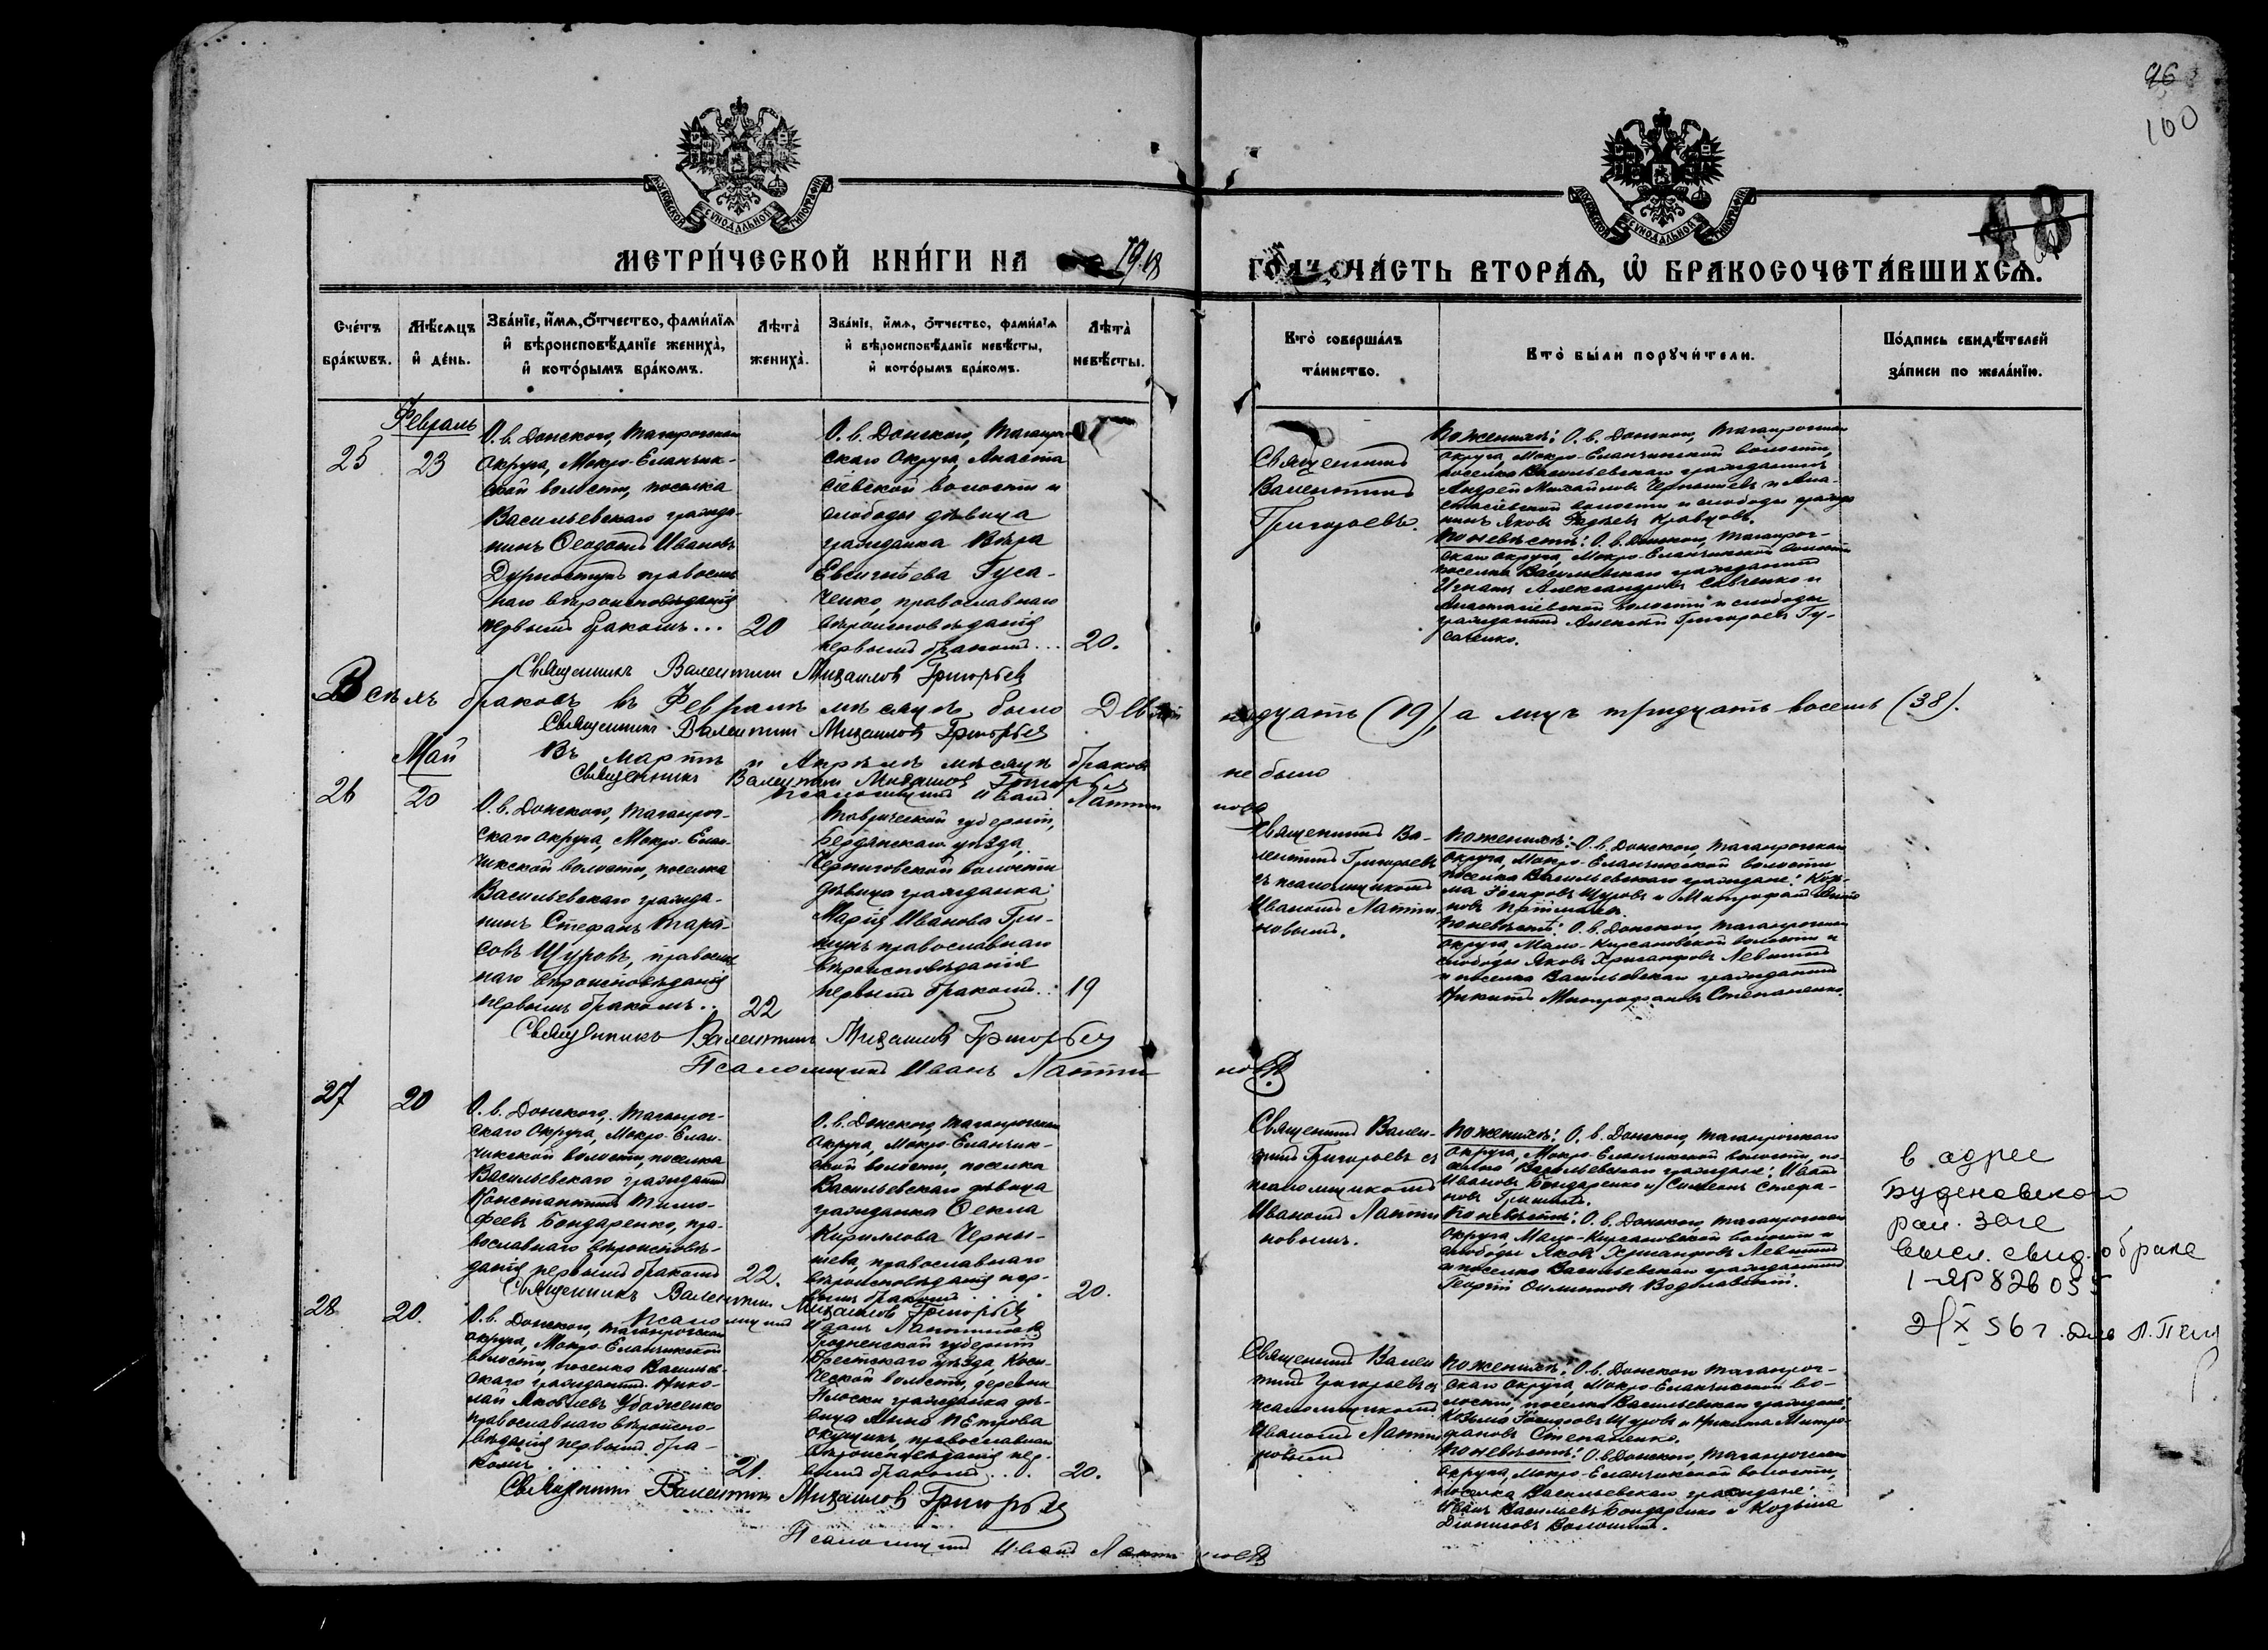 96
100
48
МОСКОВСКОЙ СѴНОДАЛЬНОЙ ТИПОГРАФІИ
МОСКОВСКОЙ СѴНОДАЛЬНОЙ ТИПОГРАФІИ
МЕТРИ́ЧЕСКОЙ КНИ́ГИ НА 1918
ГО́ДЪ ЧА́СТЬ ВТОРА́Ѧ, Ѽ БРАКОСОЧЕТА́ВШИХСѦ.
Сче́тъ бра́кѡвъ.
Мѣ́сѧцъ и҆ де́нь.
Зва́нїе, и҆́мѧ, ѻ҆́тчество, фами́лїѧ и҆ вѣроисповѣ́данїе жениха̀, и҆ кото́рымъ бра́комъ.
Лѣта̀ жениха̀.
Зва́нїе, и҆́мѧ, ѻ҆́тчество, фами́лїѧ и҆ вѣроисповѣ́данїе невѣ́сты, и҆ кото́рымъ бра́комъ.
Лѣта̀ невѣ́сты.
Кто̀ соверша́лъ та́инство.
Кто̀ бы́ли порꙋчи́тели.
По́дпись свидѣ́телей за́писи по жела́нїю.
Февраль
25
23
О. в. Донского, Таганрогскаго
Округа, Мокро-Еланчик-
ской волости, поселка
Васильевскаго гражда-
нинъ Ѳеодотъ Ивановъ
православ
наго вѣроисповѣданія
первымъ бракомъ...
20
О. в. Донского, Таганрог
скаго Округа, Анаста
сіевской волости и
слободы дѣвица
гражданка Вѣра
Евсигнѣева Гуса-
ченко, православнаго
вѣроисповѣданія
первымъ бракомъ...
20.
Священникъ
Валентинъ
Григорьевъ.
По женихѣ: О. в. Донского, Таганрогскаго
округа, Мокро-Еланчикской волости,
поселка Васильевскаго гражданинъ
Андрей Михайловъ Чернышевъ и Ана-
стасіевской волости и слободы гражда
нинъ Яковъ Фадѣевъ Кравцовъ.
По невѣстѣ: О. в. Донского, Таганрог-
скаго округа, Мокро-Еланчикской волости
поселка Васильевскаго гражданинъ
Игнатъ Александровъ Савченко и
Анастасіевской волости и слободы
гражданинъ Алексѣй Григорьевъ Гу-
саченко.
Священникъ Валентинъ Михаиловъ Григорьевъ
Всѣхъ браковъ въ Февралѣ мѣсяцѣ было Девят надцать (19), а лицъ тридцать восемь (38).
Священникъ Валентинъ Михаиловъ Григорьевъ
Въ Мартѣ и Апрѣлѣ мѣсяцѣ браковъ не было
Священникъ Валентинъ Михаиловъ Григорьевъ
Псаломщикъ Иванъ Лактионовъ
Май
26
20
О. в. Донского, Таганрог-
скаго округа, Мокро-Елан-
чикской волости, поселка
Васильевскаго гражда-
нинъ Стефанъ Тара-
совъ Щуровъ, православ
наго вѣроисповѣданія
первымъ бракомъ..
22
Таврической губерніи,
Бердянскаго уѣзда,
Черниговской волости
дѣвица гражданка
Марія Иванова Гри-
православнаго
вѣроисповѣданія
первымъ бракомъ..
19
Священникъ Ва-
лентинъ Григорьевъ
съ псаломщикомъ
Иваномъ Лактио-
новымъ.
По женихѣ: О. в. Донского, Таганрогскаго
округа, Мокро-Еланчикской волости
поселка Васильевскаго граждане: Козь-
ма Іосифовъ Щуровъ и Митрофанъ
По невѣстѣ: О. в. Донского, Таганрогскаго
округа, Мало-Кирсановской волости и
слободы Яковъ Хрисанфовъ
и поселка Васильевскаго гражданинъ
Никита Митрофановъ Степаненко.
Священникъ Валентинъ Михаиловъ Григорьевъ
Псаломщикъ Иванъ Лактионовъ
27
20
О. в. Донского, Таганрог-
скаго Округа, Мокро-Елан-
чикской волости, поселка
Васильевскаго гражданинъ
Константинъ Тимо-
феевъ Бондаренко, пра-
вославнаго вѣроисповѣ-
данія первымъ бракомъ
22.
О. в. Донского, Таганрогскаго
Округа, Мокро-Еланчик-
ской волости, поселка
Васильевскаго дѣвица
гражданка Ѳекла
Кириллова Черны-
шева, православнаго
вѣроисповѣданія пер-
вымъ бракомъ....
20.
Священникъ Вален-
тинъ Григорьевъ съ
псаломщикомъ
Иваномъ Лактіо
новымъ.
По женихѣ: О. в. Донского, Таганрогскаго
Округа, Мокро-Еланчикской волости, по-
селка Васильевскаго граждане: Иванъ
Ивановъ Бондаренко и Симеонъ Стефа-
новъ
По невѣстѣ: О. в. Донского, Таганрогскаго
округа, Мало-Кирсановской волости и
слободы Яковъ Хрисанфовъ
и поселка Васильевскаго гражданинъ
Георгій
в адрес
Буденовского
рай. загс
высл. свид. о браке
1-ЯР 826035
2/X 56 г.
Священникъ Валентинъ Михаиловъ Григорьевъ
Псаломщикъ Иванъ Лактионовъ
28
20.
О. в. Донского, Таганрогскаго
округа, Мокро-Еланчикской
волости, поселка Васильев-
скаго гражданинъ Нико-
лай Яковлевъ Убоженко
православнаго вѣроиспо-
вѣданія первымъ бра-
комъ
21.
Гродненской губерніи
Брестскаго уѣзда, Коси-
ческой волости, деревни
Плоски гражданка дѣ-
вица Анна Петрова
православнаго
вѣроисповѣданія пер-
вымъ бракомъ...
20.
Священникъ Вален
тинъ Григорьевъ съ
псаломщикомъ
Иваномъ Лактио
новымъ
По женихѣ: О. в. Донского Таганрог-
скаго округа, Мокро-Еланчикской во-
лости, поселка Васильевскаго граждане:
Козьма Іосифовъ Щуровъ и Никита Митро-
фановъ Степаненко.
По невѣстѣ: О. в. Донского, Таганрогскаго
округа, Мокро-Еланчикской волости,
поселка Васильевскаго граждане:
Иванъ Васильевъ Бондаренко и Козьма
Діонисовъ Волошинъ.
Священникъ Валентинъ Михаиловъ Григорьевъ
Псаломщикъ Иванъ Лактионовъ